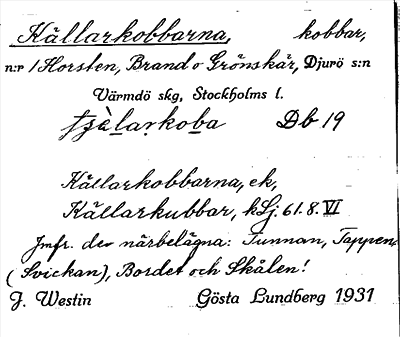 Källarkobbarna, kobbar,
n:r /Horsten, Brand o Grönskär, Djurö s:n
Värmdö skg, Stockholms l.
Db 19
Källarkobbarna, ek,
Källarkubbar, kSj. 61.8.VI
Jmfr. de närbelägna: Tunnan, Tappen,
(Svickan), Bordet och Skålen!
J. Westin Gösta Lundberg 1931